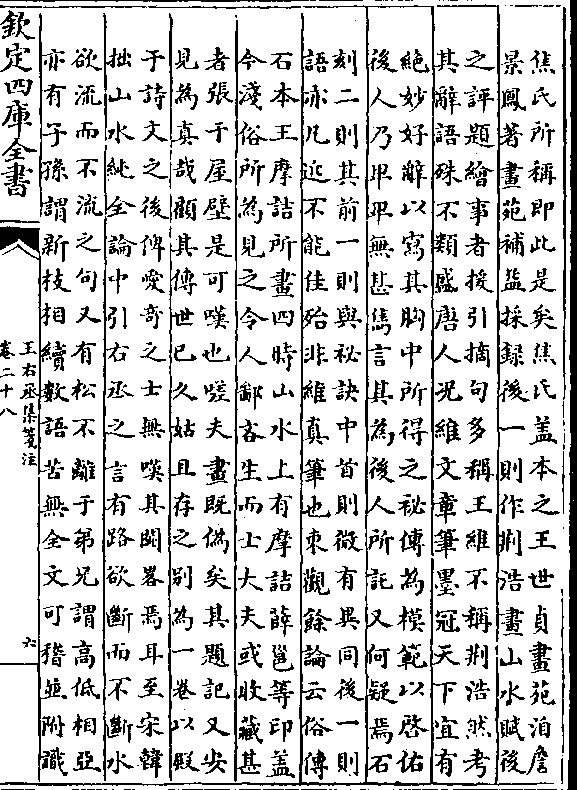 焦氏所稱即此是矣焦氏盖本之王世貞畫苑洎詹
景鳳著畫苑補益採録後一則作荆浩畫山水賦後
之評題繪事者援引摘句多稱王維不稱荆浩然考
其辭語殊不類盛唐人况維文章筆墨冠天下宜有
絶妙好辭以寫其胸中所得之秘傳為模範以啓佑
後人乃卑卑無甚焉言其為後人所託又何疑焉石
刻二則其前一則與祕訣中首則微有異同後一則
語亦凡近不能佳殆非維真筆也東觀餘論云俗傳
石本王摩詰所畫四時山水上有摩詰薛邕等印盖
今淺俗所為見之令人鄙吝生而士大夫或收藏甚
者張于屋壁是可嘆也嗟夫畫既偽矣其題記又安
見為真哉顧其傳世已久姑且存之别為一卷以殿
于詩文之後俾愛奇之士無嘆其闕畧焉耳至宋韓
拙山水純全論中引右丞之言有路欲斷而不斷水
欲流而不流之句又有松不離于弟兄謂高低相亞
亦有子孫謂新枝相續數語苦無全文可稽並附識
欽定四庫全書
王右丞集箋注
卷二十八
六